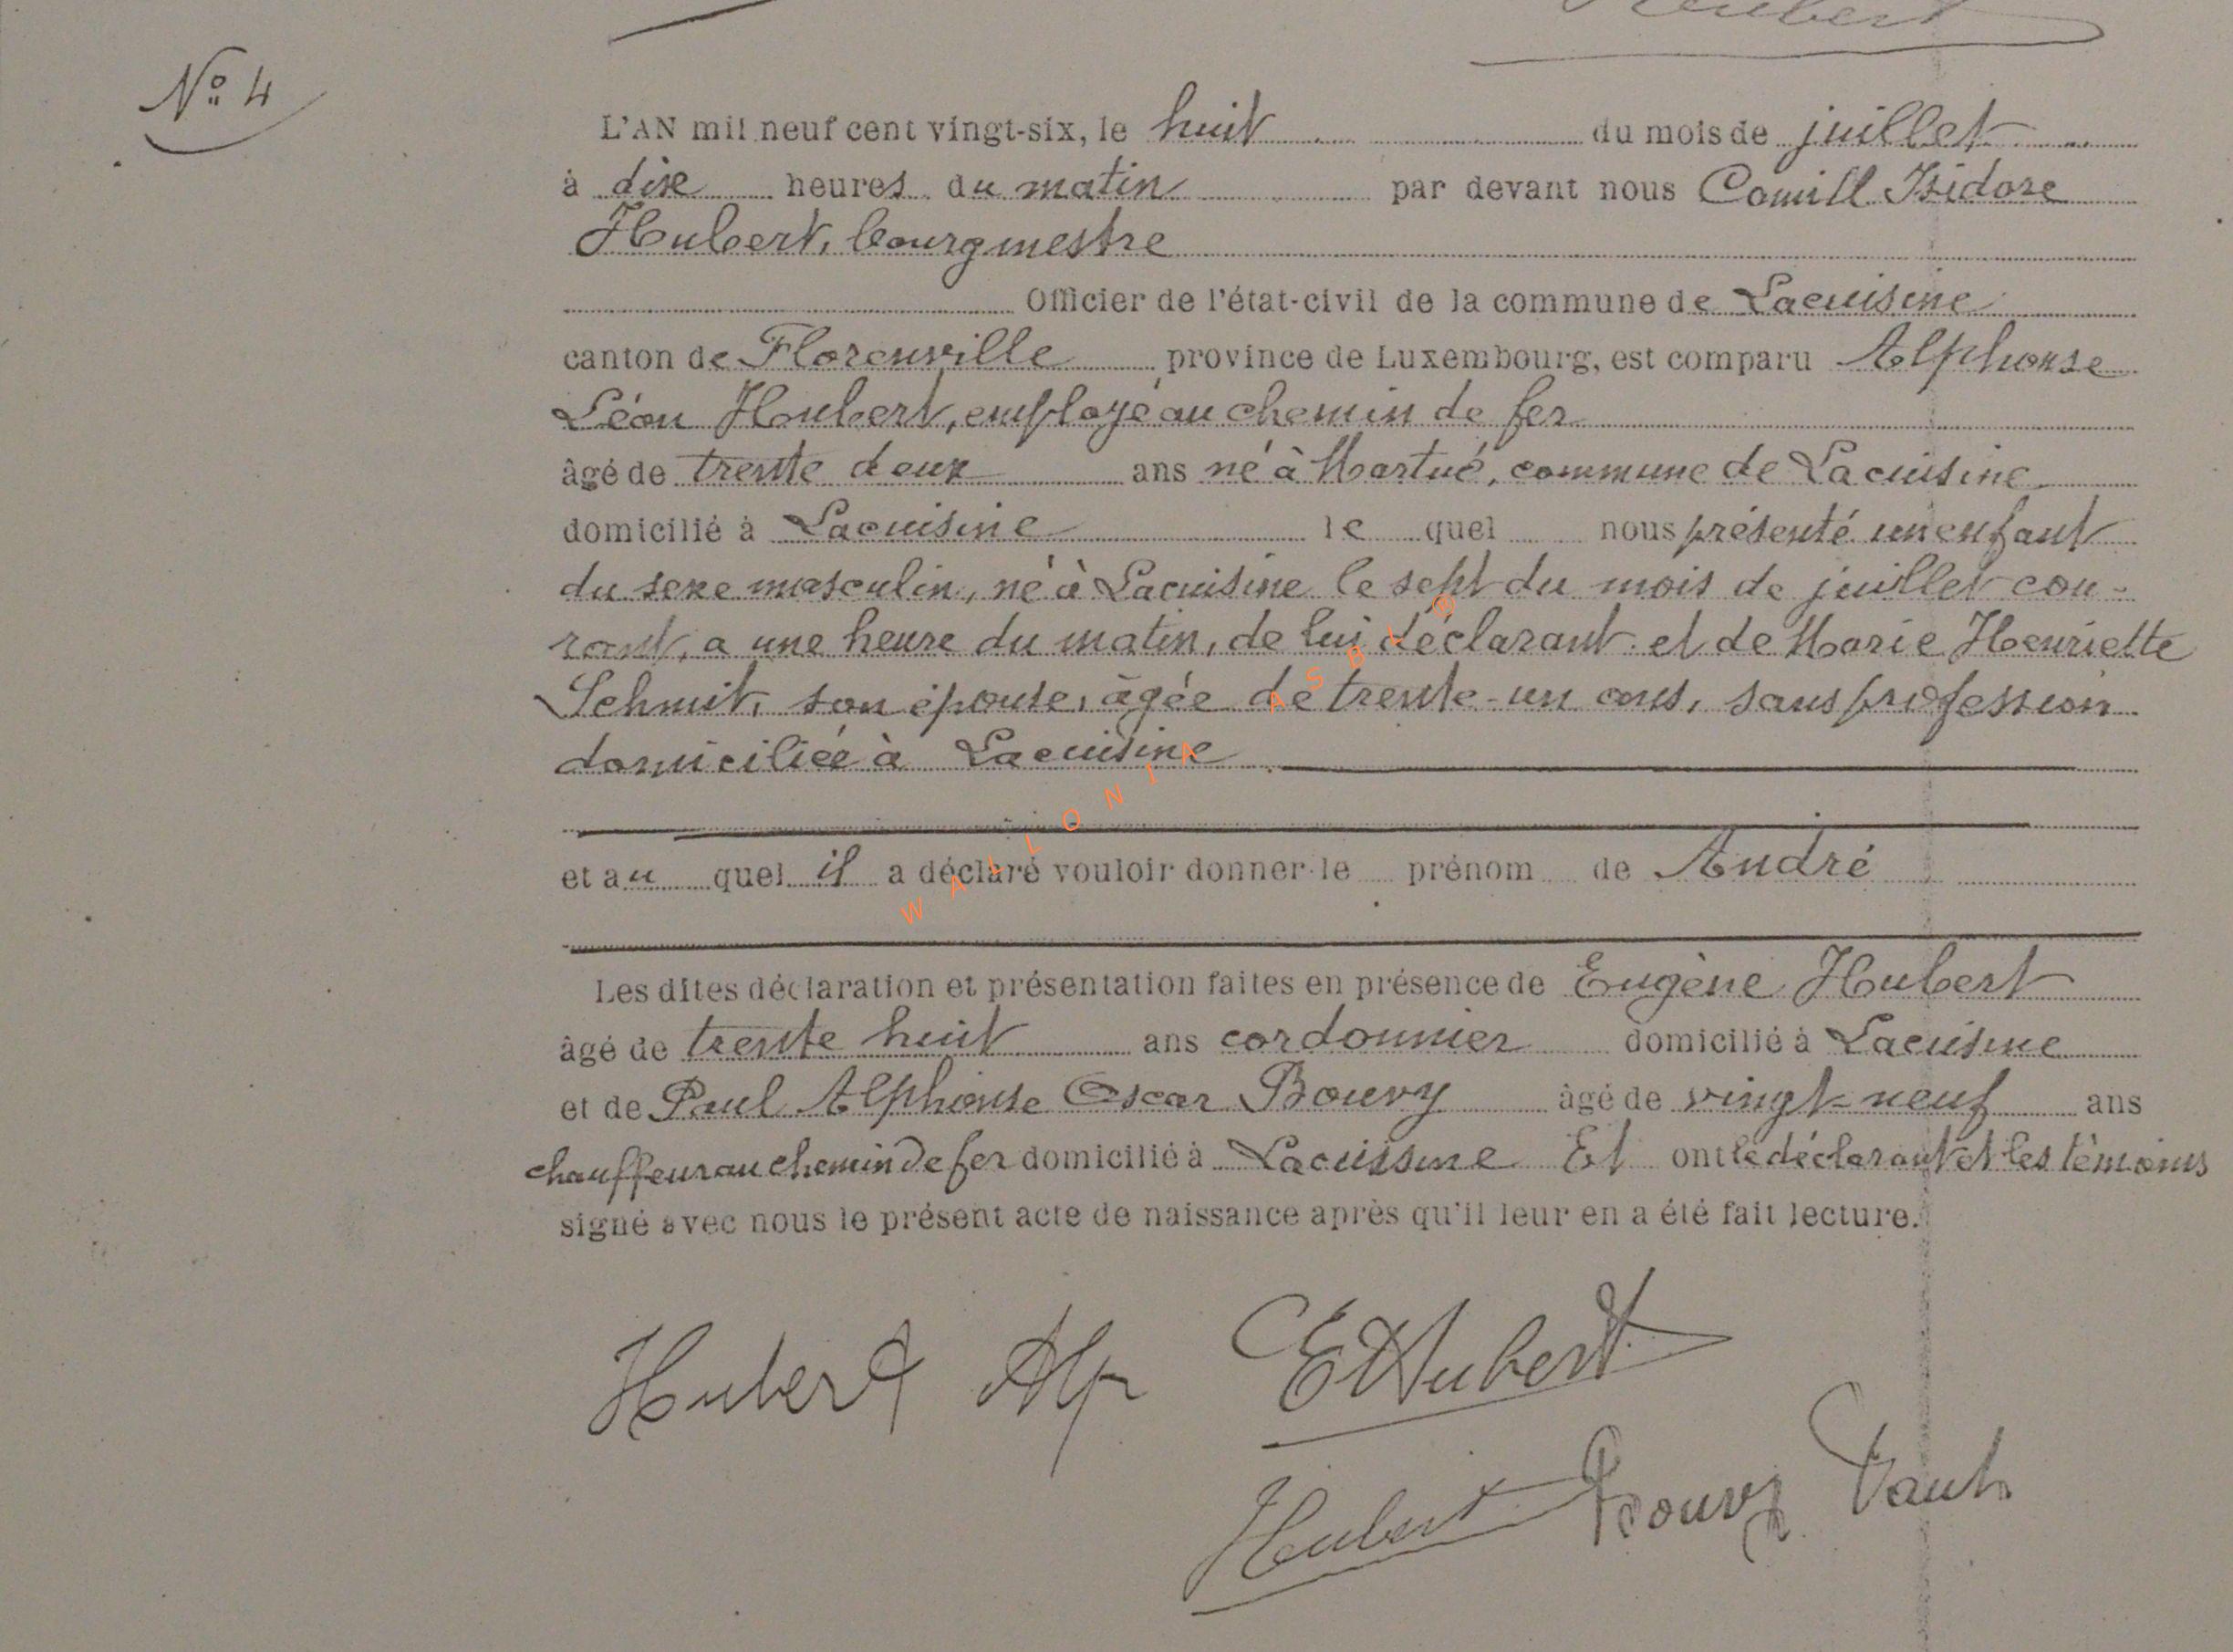 Hubert
Nº 4
L'AN mil neuf cent vingt-six, le huit du mois de juillet
à dixe heures du matin par devant nous Camill Isidore
Hubert, bourgmestre
Officier de l'état-civil de la commune de Lacuisine
canton de Florenville province de Luxembourg, est comparu Alphonse
Léon Hubert, employé au chemin de fer
âgé de trente deux ans né à Martué, commune de Lacuisine
domicilié à Lacuisine le quel nous présenté un enfant
du sexe masculin, né à Lacuisine le sept du mois de juillet cou-
rant, a une heure du matin, de lui déclarant et de Marie Henriette
Schmit, son épouse, âgée de trente-un ans, sans profession
domiciliée à Lacuisine
et au quel il a déclaré vouloir donner le prénom de André
Les dites déclaration et présentation faites en présence de Eugène Hubert
âgé de trente huit ans cordonnier domicilié à Lacuisine
et de Paul Alphonse Oscar Bouvy âgé de vingt-neuf ans
chauffeur au chemin de fer domicilié à Lacuisine Et ont le déclarant et les témoins
signé avec nous le présent acte de naissance après qu'il leur en a été fait lecture.
Hubert Alp E Hubert
Hubert Bouvy Paul
WALLONIA ASBL ®